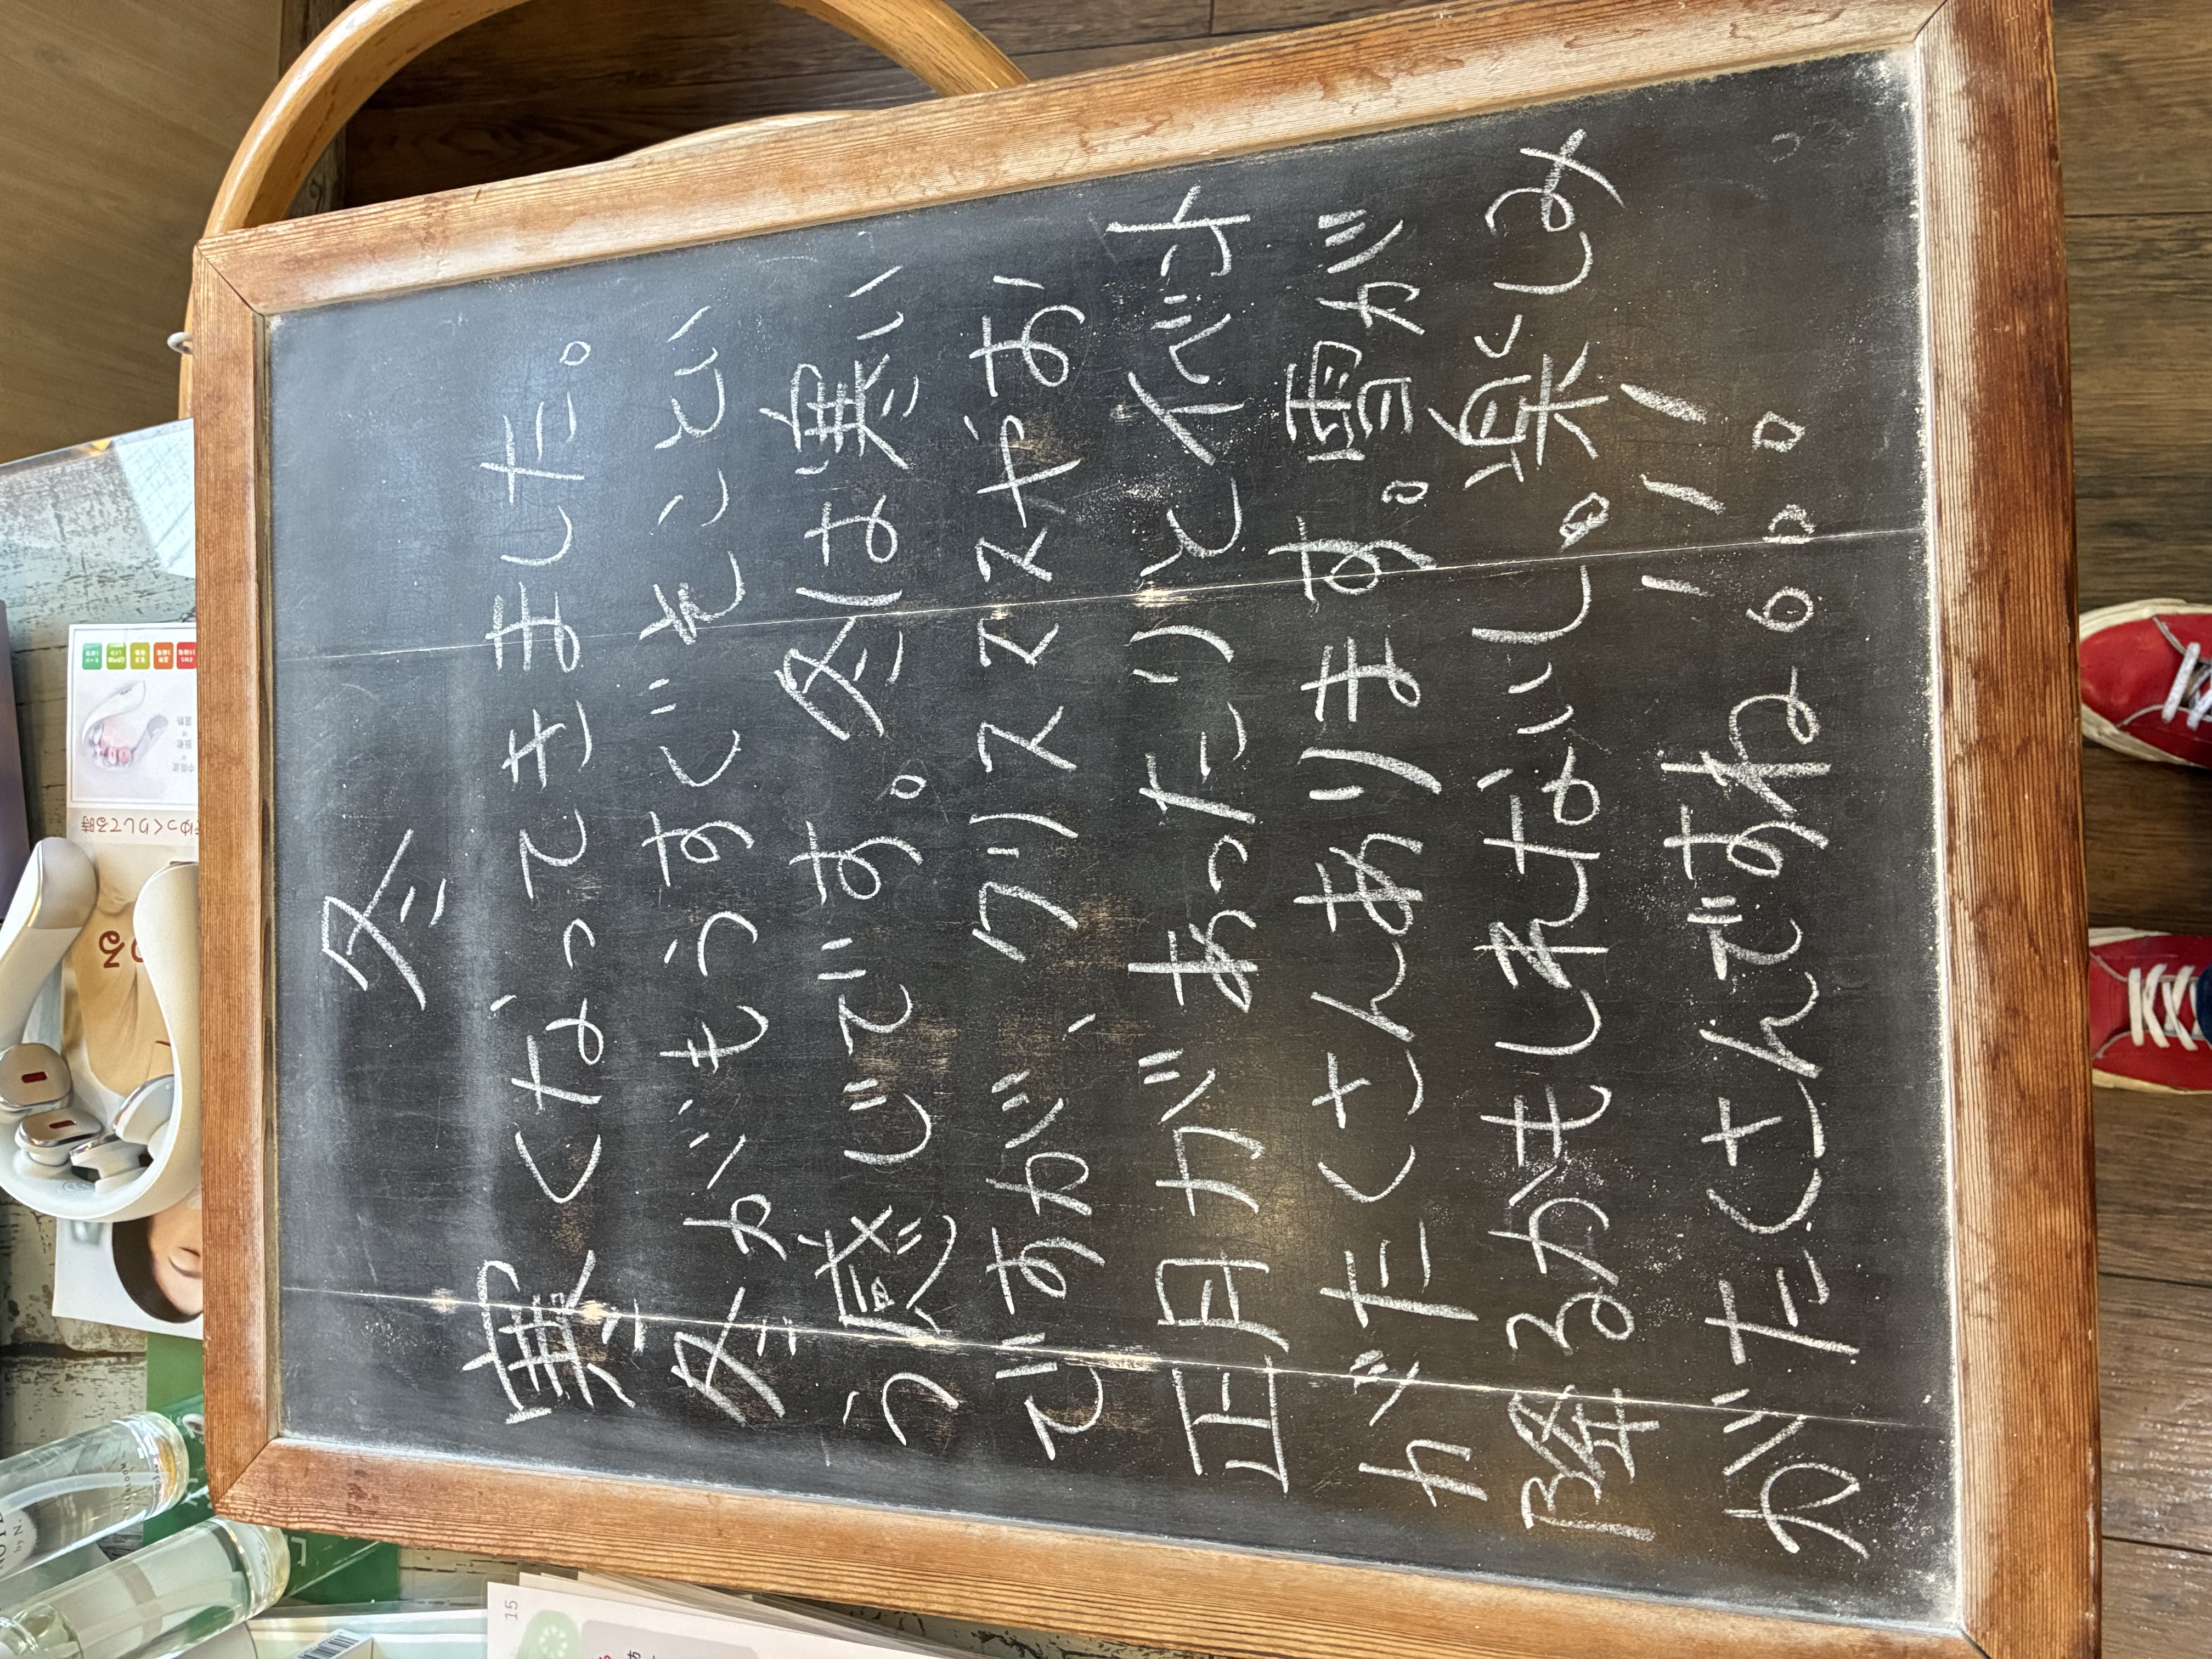 冬
寒くなってきました。
冬がもうすぐそことい
う感じです。冬は寒い
ですがク、クリスマスやお
正月があったりとイベント
がたくさんあります。雪が
降るかもしれないし。楽しみ
がたくさんですね。。。
でゆっくりしてる時
15
by N.